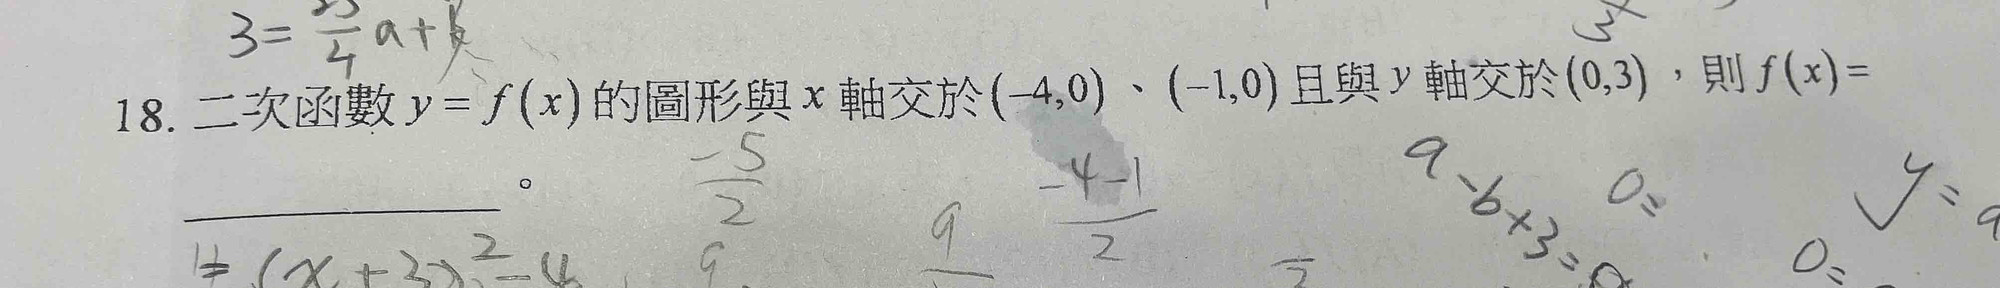 3 = 25/4 a + k
18. 二次函數 y = f(x) 的圖形與 x 軸交於 (−4,0)、(−1,0) 且與 y 軸交於 (0,3)，則 f(x) =
________。
-5/2
-4-1/2
9-6+3=0
0=
y=
(x+3)²-4
9
9
0=